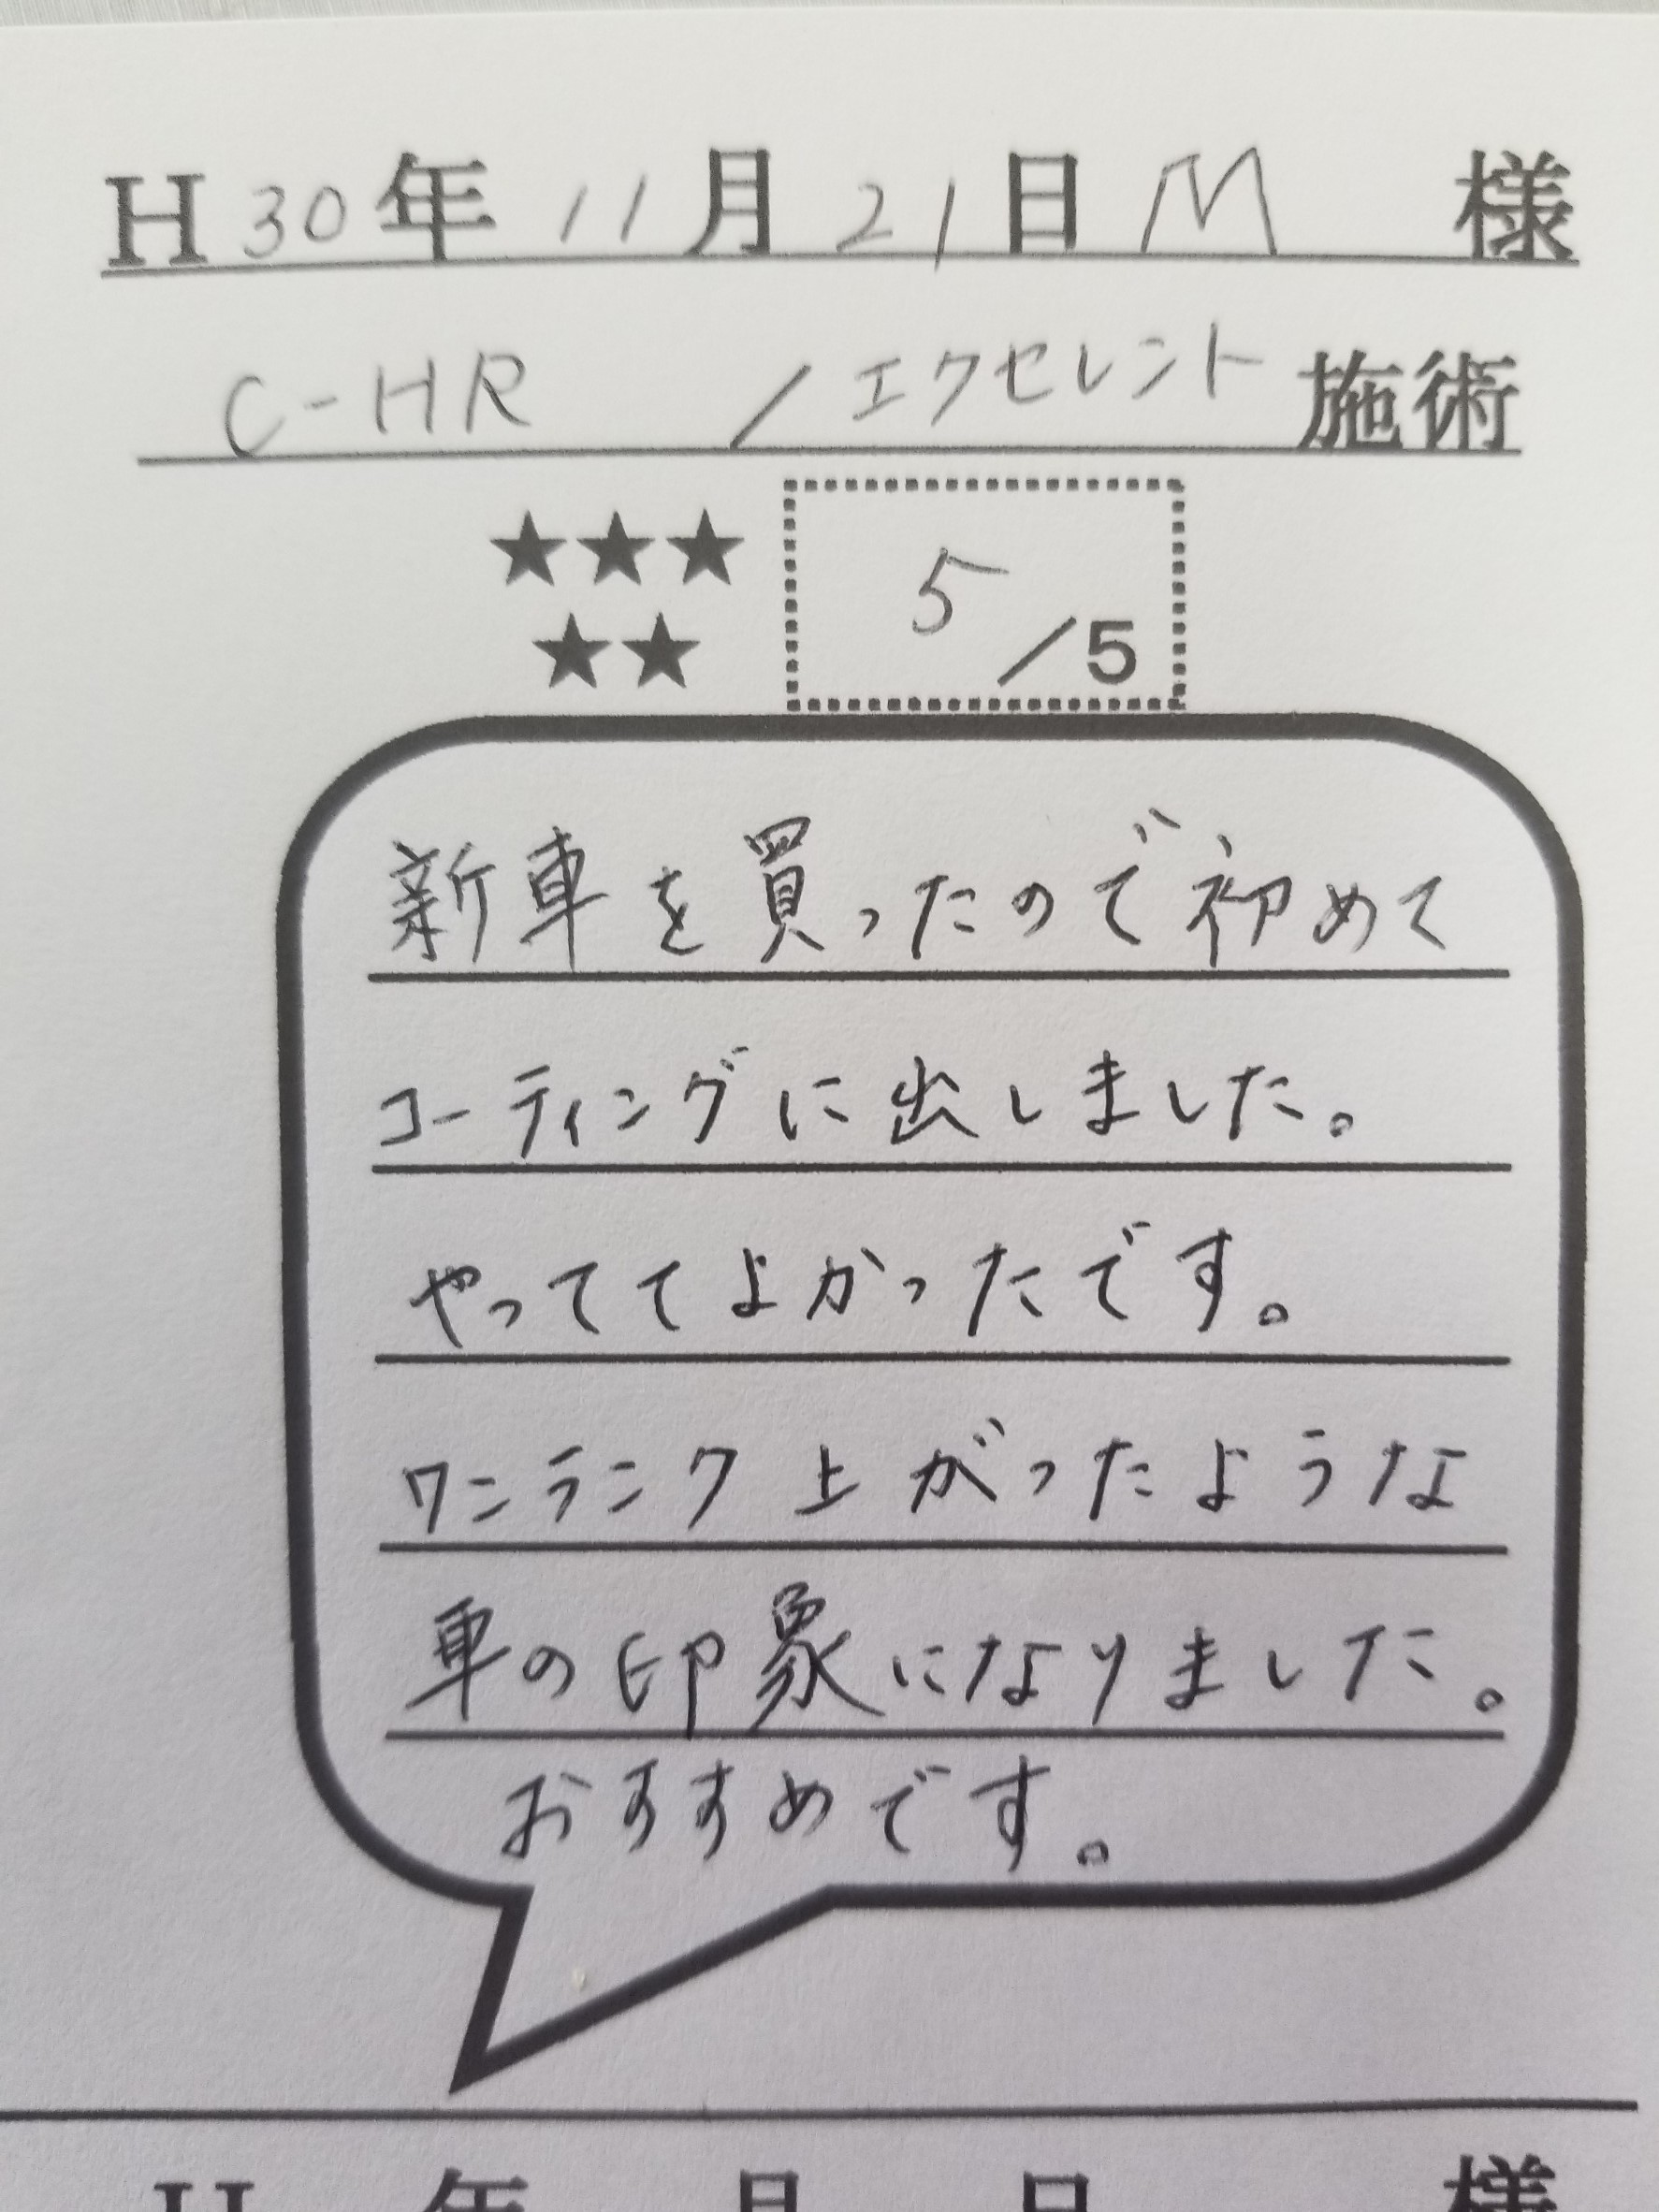 H30年11月21日M 様
C-HR /エクセレント施術
★★★
★★
5/5
新車を買ったので初めて
コーティングに出しました。
やっててよかったです。
ワンランク上がったような
車の印象になりました。
おすすめです。
H 年 月 日 様